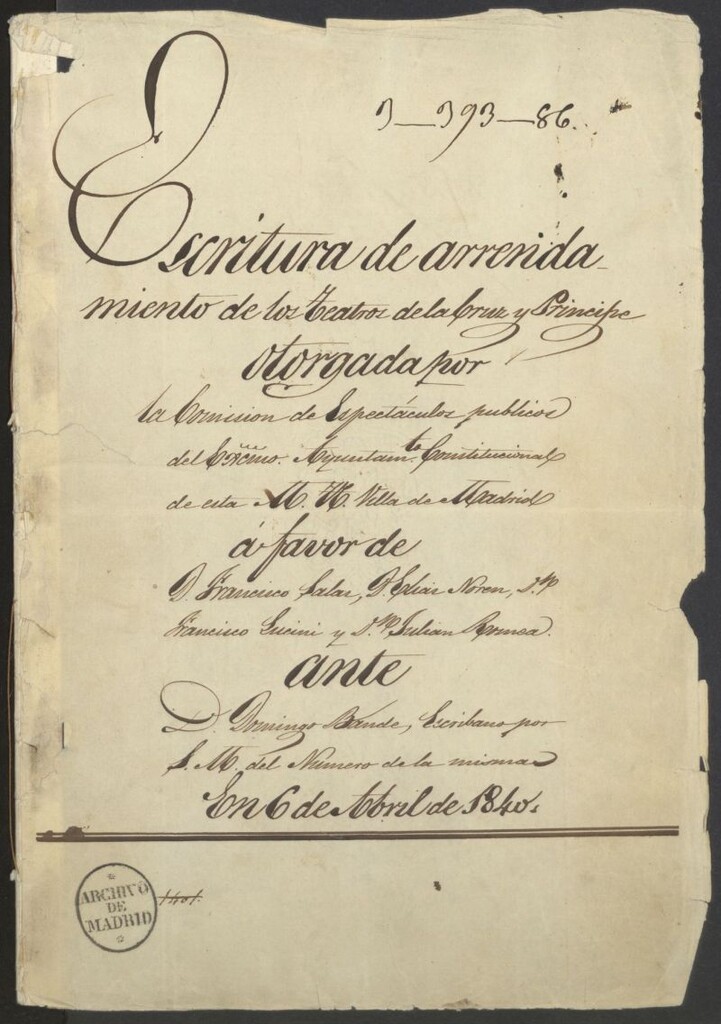 3-393-86.
Escritura de arrenda-
miento de los Teatros de la Cruz y Principe
otorgada por
la Comision de Espectáculos publicos
del Excmo. Ayuntamto. Constitucional
de esta M. H. Villa de Madrid
á favor de
D. Francisco Salas, D. Elias Noren, D.n
Francisco Lucini y D.n Julian Romea.
ante
D. Domingo Bande, Escribano por
S. M. del Numero de la misma
En 6 de Abril de 1840.
ARCHIVO
DE
MADRID
1401.